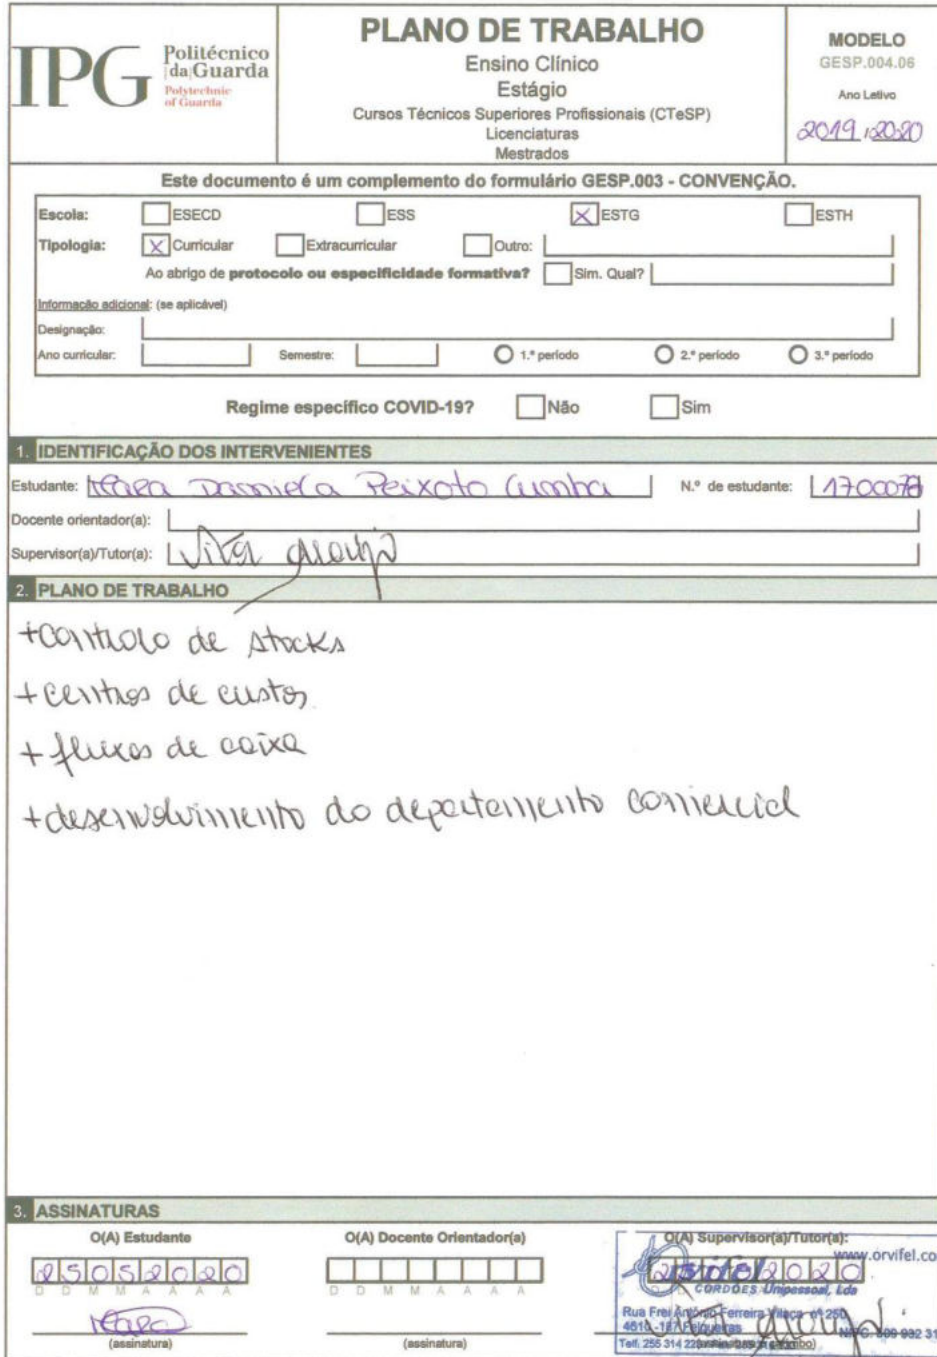 IPG Politécnico da Guarda
Polytechnic of Guarda
PLANO DE TRABALHO
Ensino Clínico
Estágio
Cursos Técnicos Superiores Profissionais (CTeSP)
Licenciaturas
Mestrados
MODELO
GESP.004.06
Ano Letivo
2019 / 2020
Este documento é um complemento do formulário GESP.003 - CONVENÇÃO.
Escola: ESECD ESS X ESTG ESTH
Tipologia: X Curricular Extracurricular Outro:
Ao abrigo de protocolo ou especificidade formativa? Sim. Qual?
Informação adicional: (se aplicável)
Designação:
Ano curricular: Semestre: 1.º período 2.º período 3.º período
Regime específico COVID-19? Não Sim
1. IDENTIFICAÇÃO DOS INTERVENIENTES
Estudante: Mara Daniela Peixoto Cunha N.º de estudante: 170007
Docente orientador(a):
Supervisor(a)/Tutor(a): Vitor Araujo
2. PLANO DE TRABALHO
+controlo de stocks
+centros de custos
+fluxos de caixa
+desenvolvimento do departamento comercial
3. ASSINATURAS
O(A) Estudante O(A) Docente Orientador(a) O(A) Supervisor(a)/Tutor(a):
www.orvifel.co
25052020 2020
D D M M A A A A D D M M A A A A
Orvifel
CORDÕES Unipessoal, Lda
Rua Frei António Ferreira Vilaça nº 250
4610 -187 Felgueiras
Telf. 255 314 22
Mara
(assinatura) (assinatura)